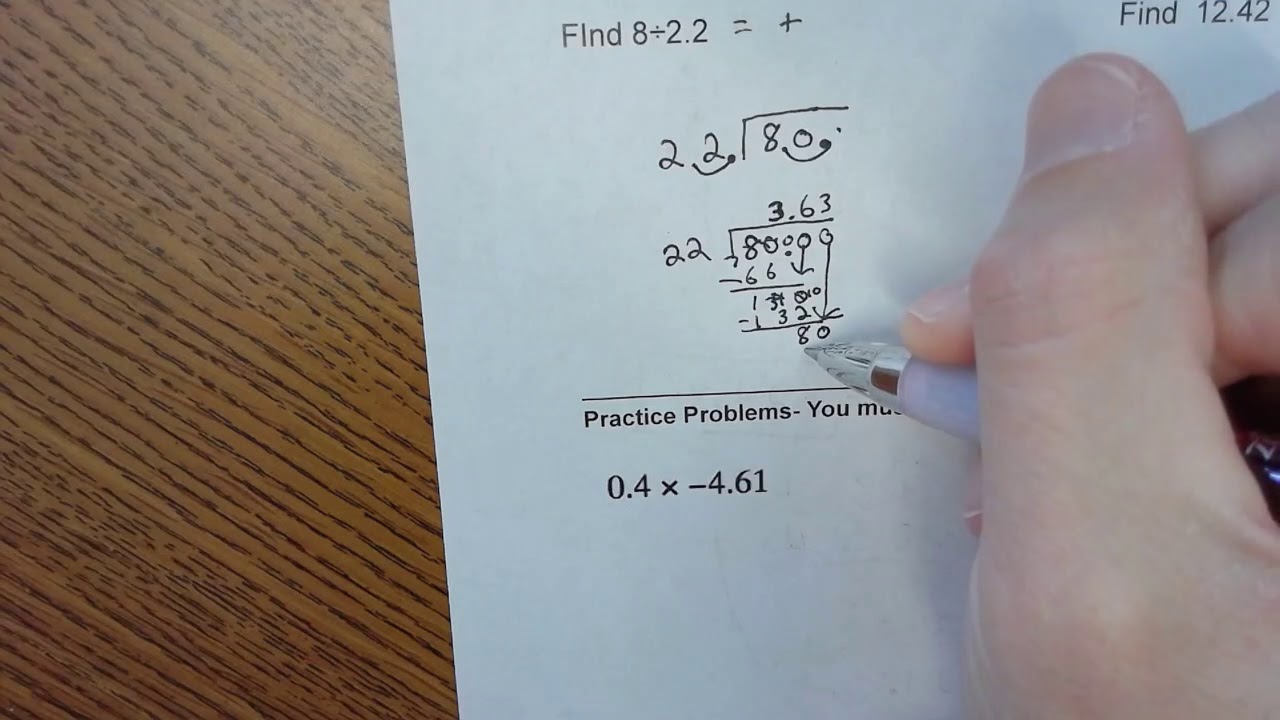 FInd 8÷2.2 = +
Find 12.42
2.2. 80.
3.63
22 80.00
-66
1 10
-1 32
80
Practice Problems- You
0.4 × −4.61